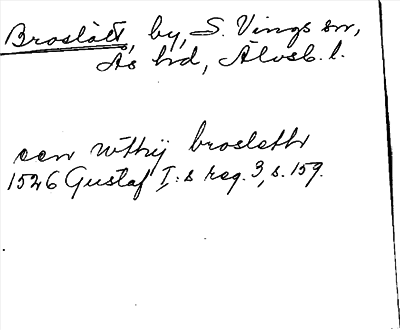 Broslätt, by, S. Vings sn,
Ås hd, Älvsb. l.
een withij brosleth
1526 Gustaf I:s reg. 3, s. 159.